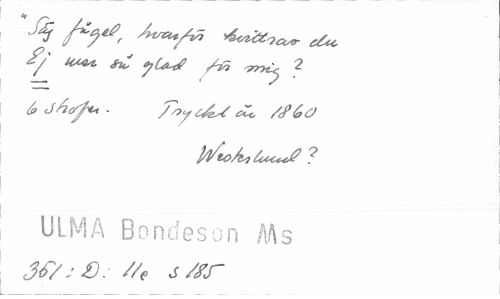 "Säg fågel, hvarför kvittrar du
Ej mer så glad för mig?
6 strofer. Tryckt år 1860
Westerlund?
ULMA Bondeson Ms
351:D: 11e s 185